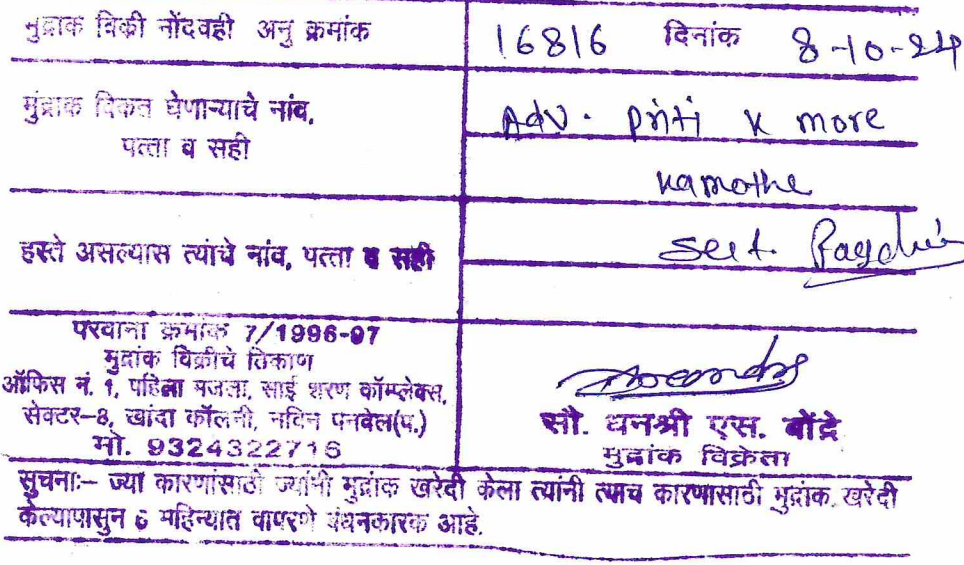 मुद्रांक विक्री नोंदवही अनु क्रमांक 16816 दिनांक 8-10-24
मुंद्रांक विकत घेणाऱ्याचे नांव, Adv. Priti K more
पत्ता व सही
Kamothe
हस्ते असल्यास त्यांचे नांव, पत्ता व सही
परवाना क्रमांक 7/1996-97
मुद्रांक विक्रीचे ठिकाण
ऑफिस नं. १, पहिला मजला, साई शरण कॉम्प्लेक्स,
सेक्टर-8, खांदा कॉलनी, नविन पनवेल(प.)
मो. 9324322716
सौ. धनश्री एस. बोंद्रे
मुद्रांक विक्रेता
सुचनाः- ज्या कारणांसाठी ज्यांनी मुद्रांक खरेदी केला त्यांनी त्याच कारणासाठी मुद्रांक खरेदी
केल्यापासुन 6 महिन्यात वापरणे बंधनकारक आहे.